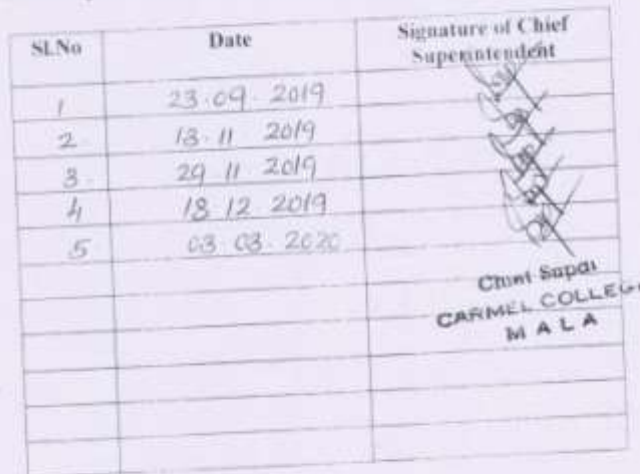 Sl.No Date Signature of Chief Superintendent
1 23.09.2019
2 13.11 2019
3 29 11 2019
4 18 12 2019
5 03 03.2020
Chief Supdt
CARMEL COLLEGE
MALA